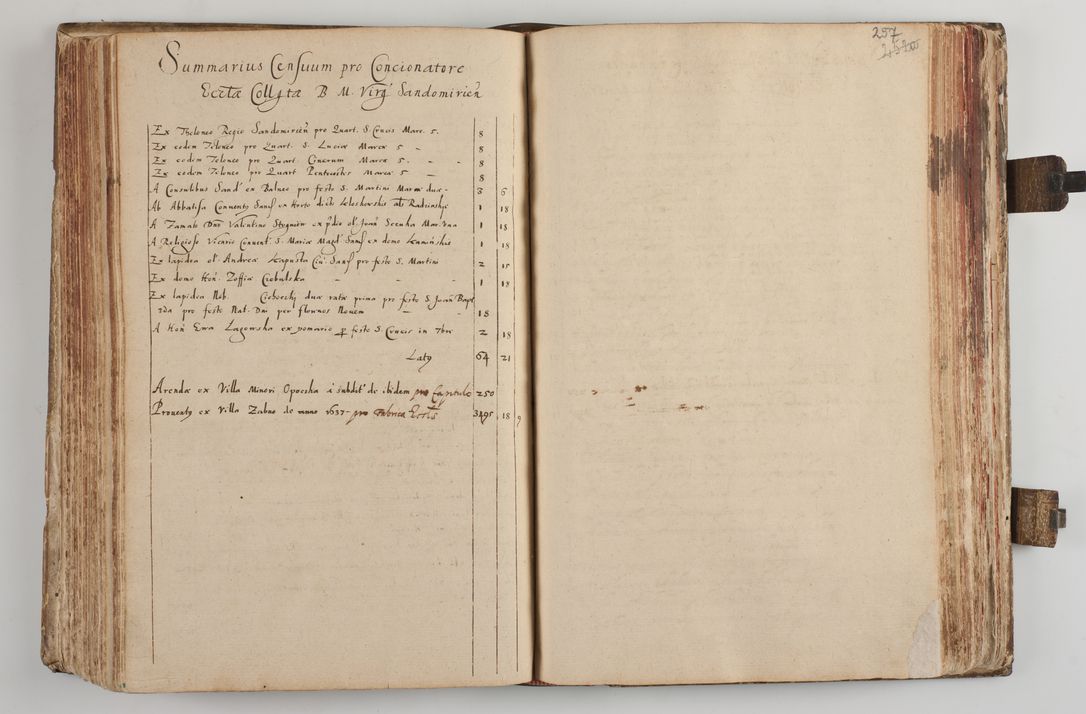 Summarius Censuum pro Concionatore
Ecctæ Collgtæ B. M. Virg. Sandomirien
Ex Theloneo Regio Sandomirien pro Quart. S. Crucis Marc. 5. 8
Ex eodem Teloneo pro Quart. S. Luciæ Marcæ 5 - 8
Ex eodem Teloneo pro Quart. Cinerum Marcæ 5. - - 8
Ex eodem Teloneo pro Quart Pentecostes Marcæ 5 - 8
A Consulibus Sand ex Balneo pro festo S. Martini Marcæ duæ - 3 6
Ab Abbatissa Conuentus Sand ex Horto dicto als 1 18
A Famato Dno Valentino ex pdio ol. Joan Mar. Vna 1 18
A Religioso Vicario Conuent. S. Mariæ Magd Sand ex domo 1 18
Ex lapidea ol. Andreæ Kapusta Ciu. Sand pro festo S. Martini 2 15
Ex domo Hon. Zoffiæ Cebulska - - - 1 18
Ex lapidea Nob. duæ ratæ prima pro festo S. Joan Bapt
2da pro festo Nat. Dni per florenos Nouem - - 18
A Hon Ewa Lagowska ex pomario p festo S. Crucis in 7bre 2 18
Laty 64 21
Arenda ex Villa Minori Opoczka i subdit de ibidem pro Capitulo 250
Prouentus ex Villa Zabno de anno 1637 - pro Fabrica Eccl 3495 18 9
257